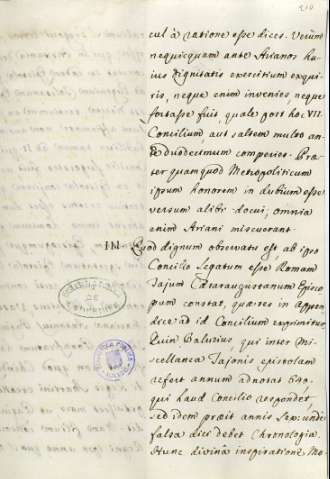 210
cul à ratione esse dices. Verùm
nequicquam ante Arianos hu
ius dignitatis exercitium exqui
ris, neque enim invenies, neque
fortasse fuit, quale post hoc VII
Concilium, aut saltem multo an
te duodecimum comperies. Præ
ter quamquod Metropoliticum
ipsum honorem in dubium esse
versum alibi docui, omnia
enim Ariani miscuerant.
III. Quod dignum observatu est, ab ipso
Concilio Legatum esse Romam
Tajum Cæsaraugustanum Episco
pum constat, quæ res in appen
dice ad id Concilium exprimitur
Quin Baluzius, qui inter Mi
scellanea Tajonis epistolam
refert annum adnotat 649,
qui haud Concilio respondet,
sed idem præit annis Sep: unde
falsa dici debet Chronologia.
Hunc divinâ inspiratione Mo-